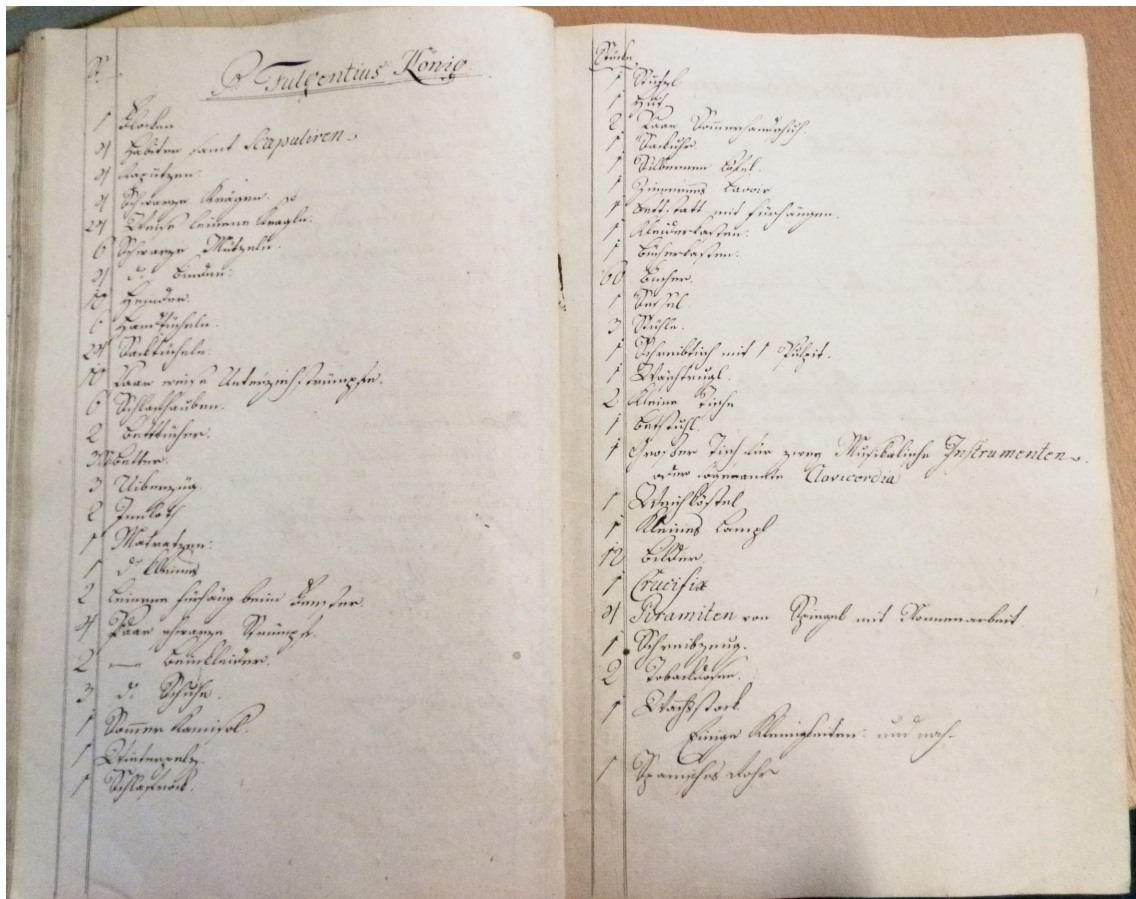 St.
P. Fulgentius König
1 Flocken
4 Habiten samt Scapuliren.
4 Kaputzen.
4 Schwarze Krägen.
24 Weise leinene Kragln.
6 Schwarze Mützeln.
4 do Binden.
18 Hemder.
6 Handtücheln.
24 Sacktücheln.
10 Paar weise Unterziehstrümpfe.
6 Schlafhauben.
2 Bettücher.
3 better.
3 Uiberzüg.
2
1 Matratzen:
1 do kleines
2 Leinene Fürhäng beim Fenster.
4 Paar schwarze Strümpf.
2 — Beinkleider.
3 do Schuhe.
1 Sommer Kamisol.
1 Winterpelz.
1 Schlafrock.
Stücke.
1 Stiefel
1 Hut
2 Paar Sommerhandschuh.
1 Sackuhr.
1 Silberner Löfel.
1 Zinnernes Lavoir
1 Bettstatt mit Fürhängen.
1 Kleiderkasten.
1 Bücherkasten.
60 Bücher.
1 Sessel.
3 Stühle.
1 Schreibtisch mit 1 Pulpit.
1
2 Kleine Tische
1 Betstuhl.
1 Großer Tisch für zwey Musikalische Instrumenten.
oder sogenannte Clavicordia
1
1 Kleines Lampl
12 Bilder.
1 Crucifix
4 Piramiten von Spiegel mit Nonnenarbeit
1 Schreibzeug.
2 Tobackdosen.
1 Wachsstock
Einige Kleinigkeiten: und noch.
1 Spanisches Rohr